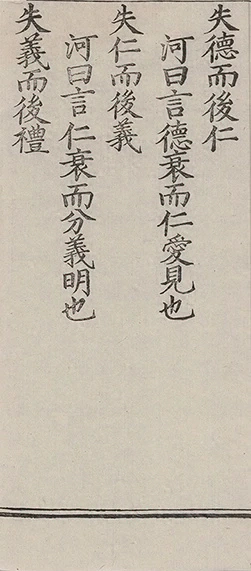 失德而後仁
河曰言德衰而仁愛見也
失仁而後義
河曰言仁衰而分義明也
失義而後禮